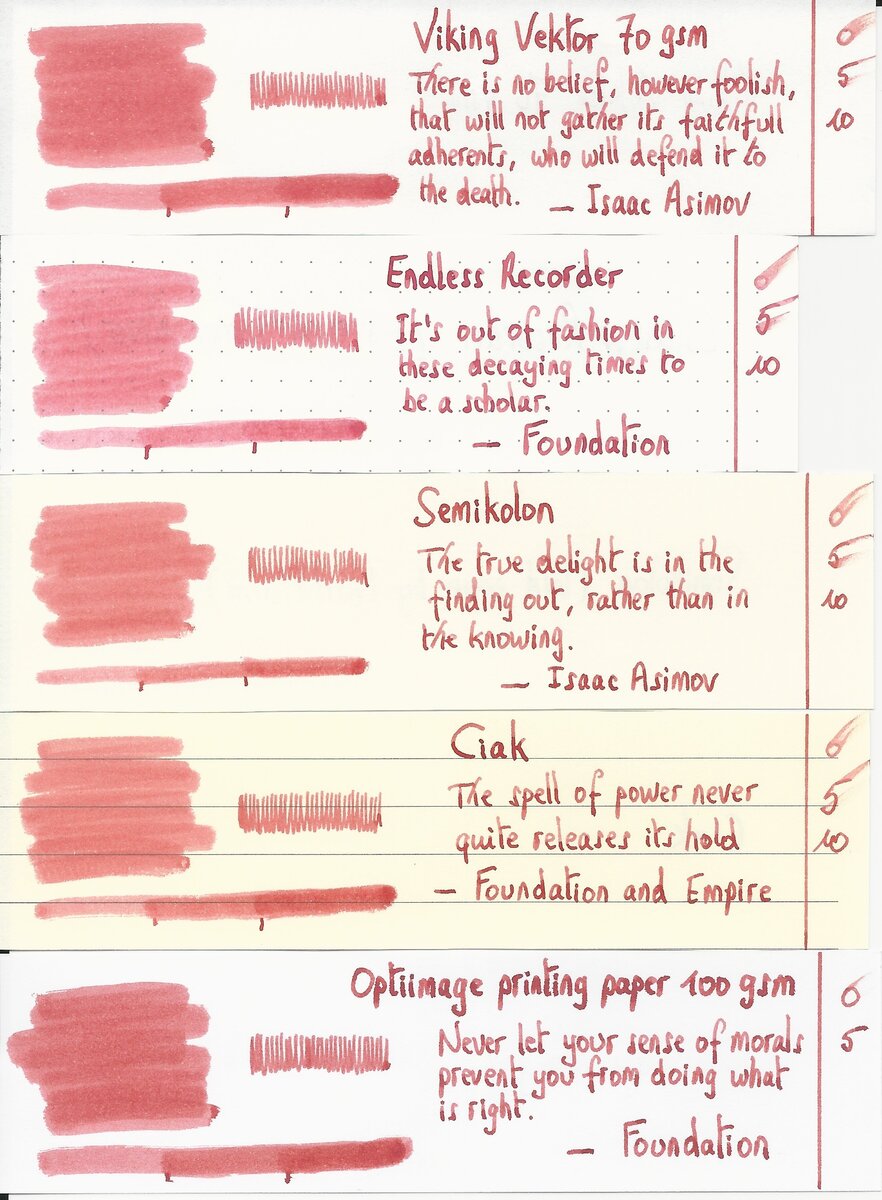 Viking Vektor 70 gsm
There is no belief, however foolish,
that will not gather its faithfull
adherents, who will defend it to
the death. — Isaac Asimov
0
5
10
Endless Recorder
It's out of fashion in
these decaying times to
be a scholar.
— Foundation
0
5
10
Semikolon
The true delight is in the
finding out, rather than in
the knowing.
— Isaac Asimov
0
5
10
Ciak
The spell of power never
quite releases its hold
— Foundation and Empire
0
5
10
Optiimage printing paper 100 gsm
Never let your sense of morals
prevent you from doing what
is right.
— Foundation
0
5